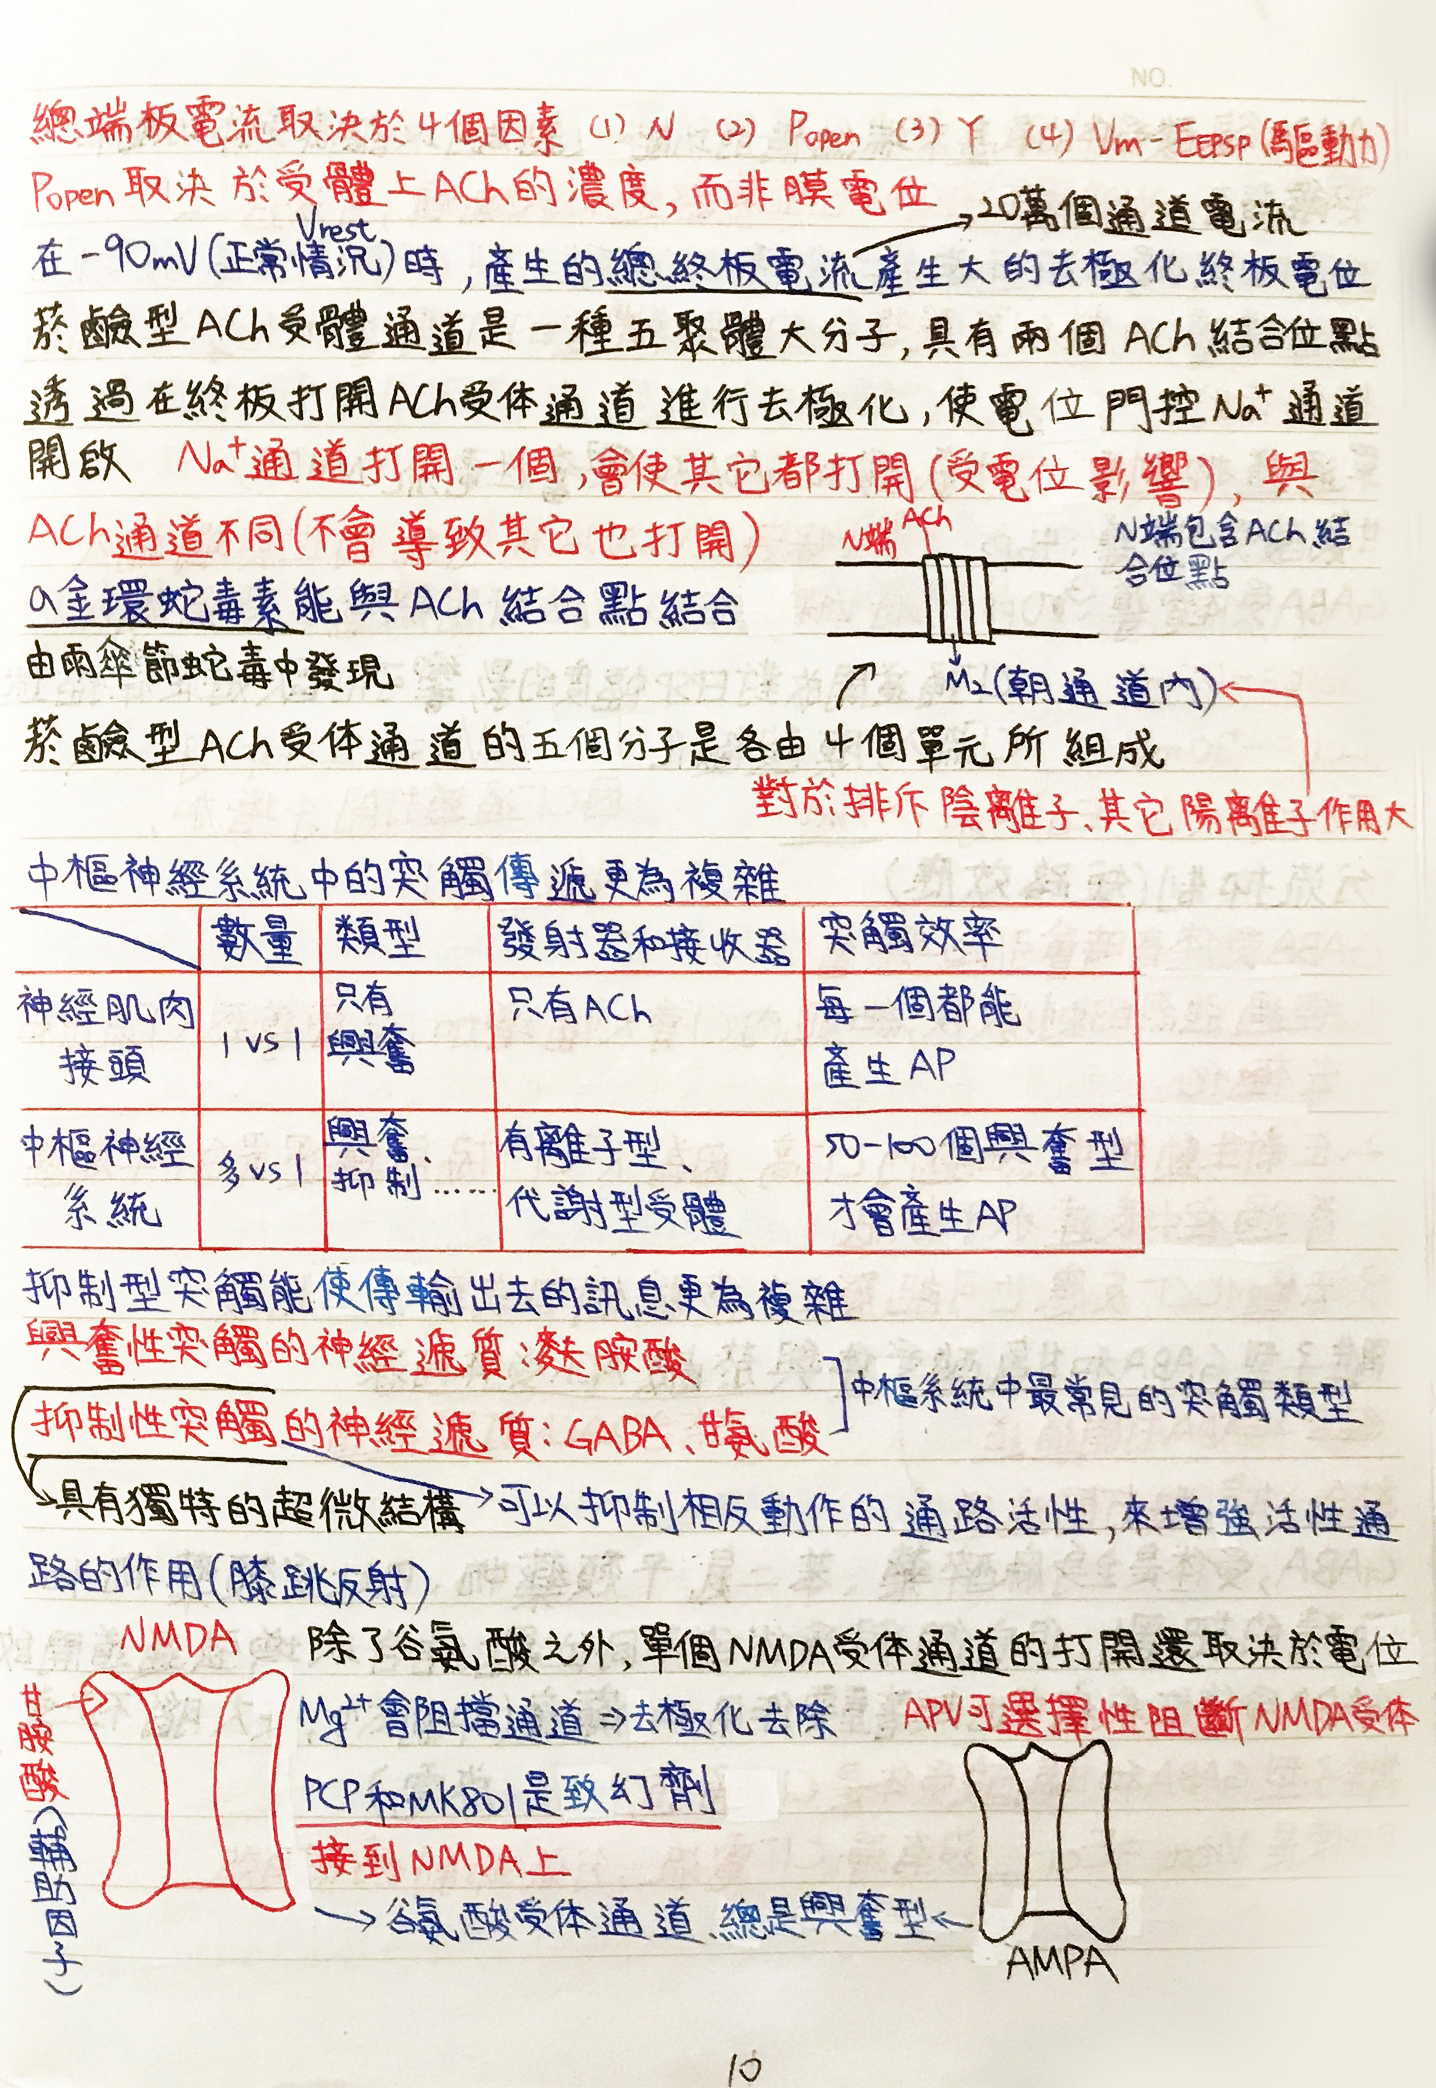 NO.
總端板電流取決於4個因素 (1) N (2) Popen (3) γ (4) Vm-EEPSP(驅動力)
Popen取決於受體上ACh的濃度,而非膜電位
→20萬個通道電流
Vrest
在-90mV(正常情況)時,產生的總終板電流產生大的去極化終板電位
菸鹼型ACh受體通道是一種五聚體大分子,具有兩個ACh結合位點
透過在終板打開ACh受体通道進行去極化,使電位門控Na⁺通道
開啟 Na⁺通道打開一個,會使其它都打開(受電位影響),與
ACh通道不同(不會導致其它也打開)
N端 ACh
N端包含ACh結
合位點
α金環蛇毒素能與ACh結合點結合
由雨傘節蛇毒中發現
M₂(朝通道內)
菸鹼型ACh受体通道的五個分子是各由4個單元所組成
對於排斥陰離子、其它陽離子作用大
中樞神經系統中的突觸傳遞更為複雜
數量 類型 發射器和接收器 突觸效率
神經肌肉 1 vs 1 只有 只有ACh 每一個都能
接頭 興奮 產生AP
中樞神經 多vs1 興奮、 有離子型、 50-100個興奮型
系統 抑制…… 代謝型受體 才會產生AP
抑制型突觸能使傳輸出去的訊息更為複雜
興奮性突觸的神經遞質:麩胺酸
抑制性突觸的神經遞質:GABA、甘氨酸
中樞系統中最常見的突觸類型
→具有獨特的超微結構 →可以抑制相反動作的通路活性,來增強活性通
路的作用(膝跳反射)
NMDA 除了谷氨酸之外,單個NMDA受体通道的打開還取決於電位
甘胺酸(輔助因子)
Mg²⁺會阻擋通道⇒去極化去除 APV可選擇性阻斷NMDA受体
PCP和MK801是致幻劑
接到NMDA上
→谷氨酸受体通道、總是興奮型←
AMPA
10